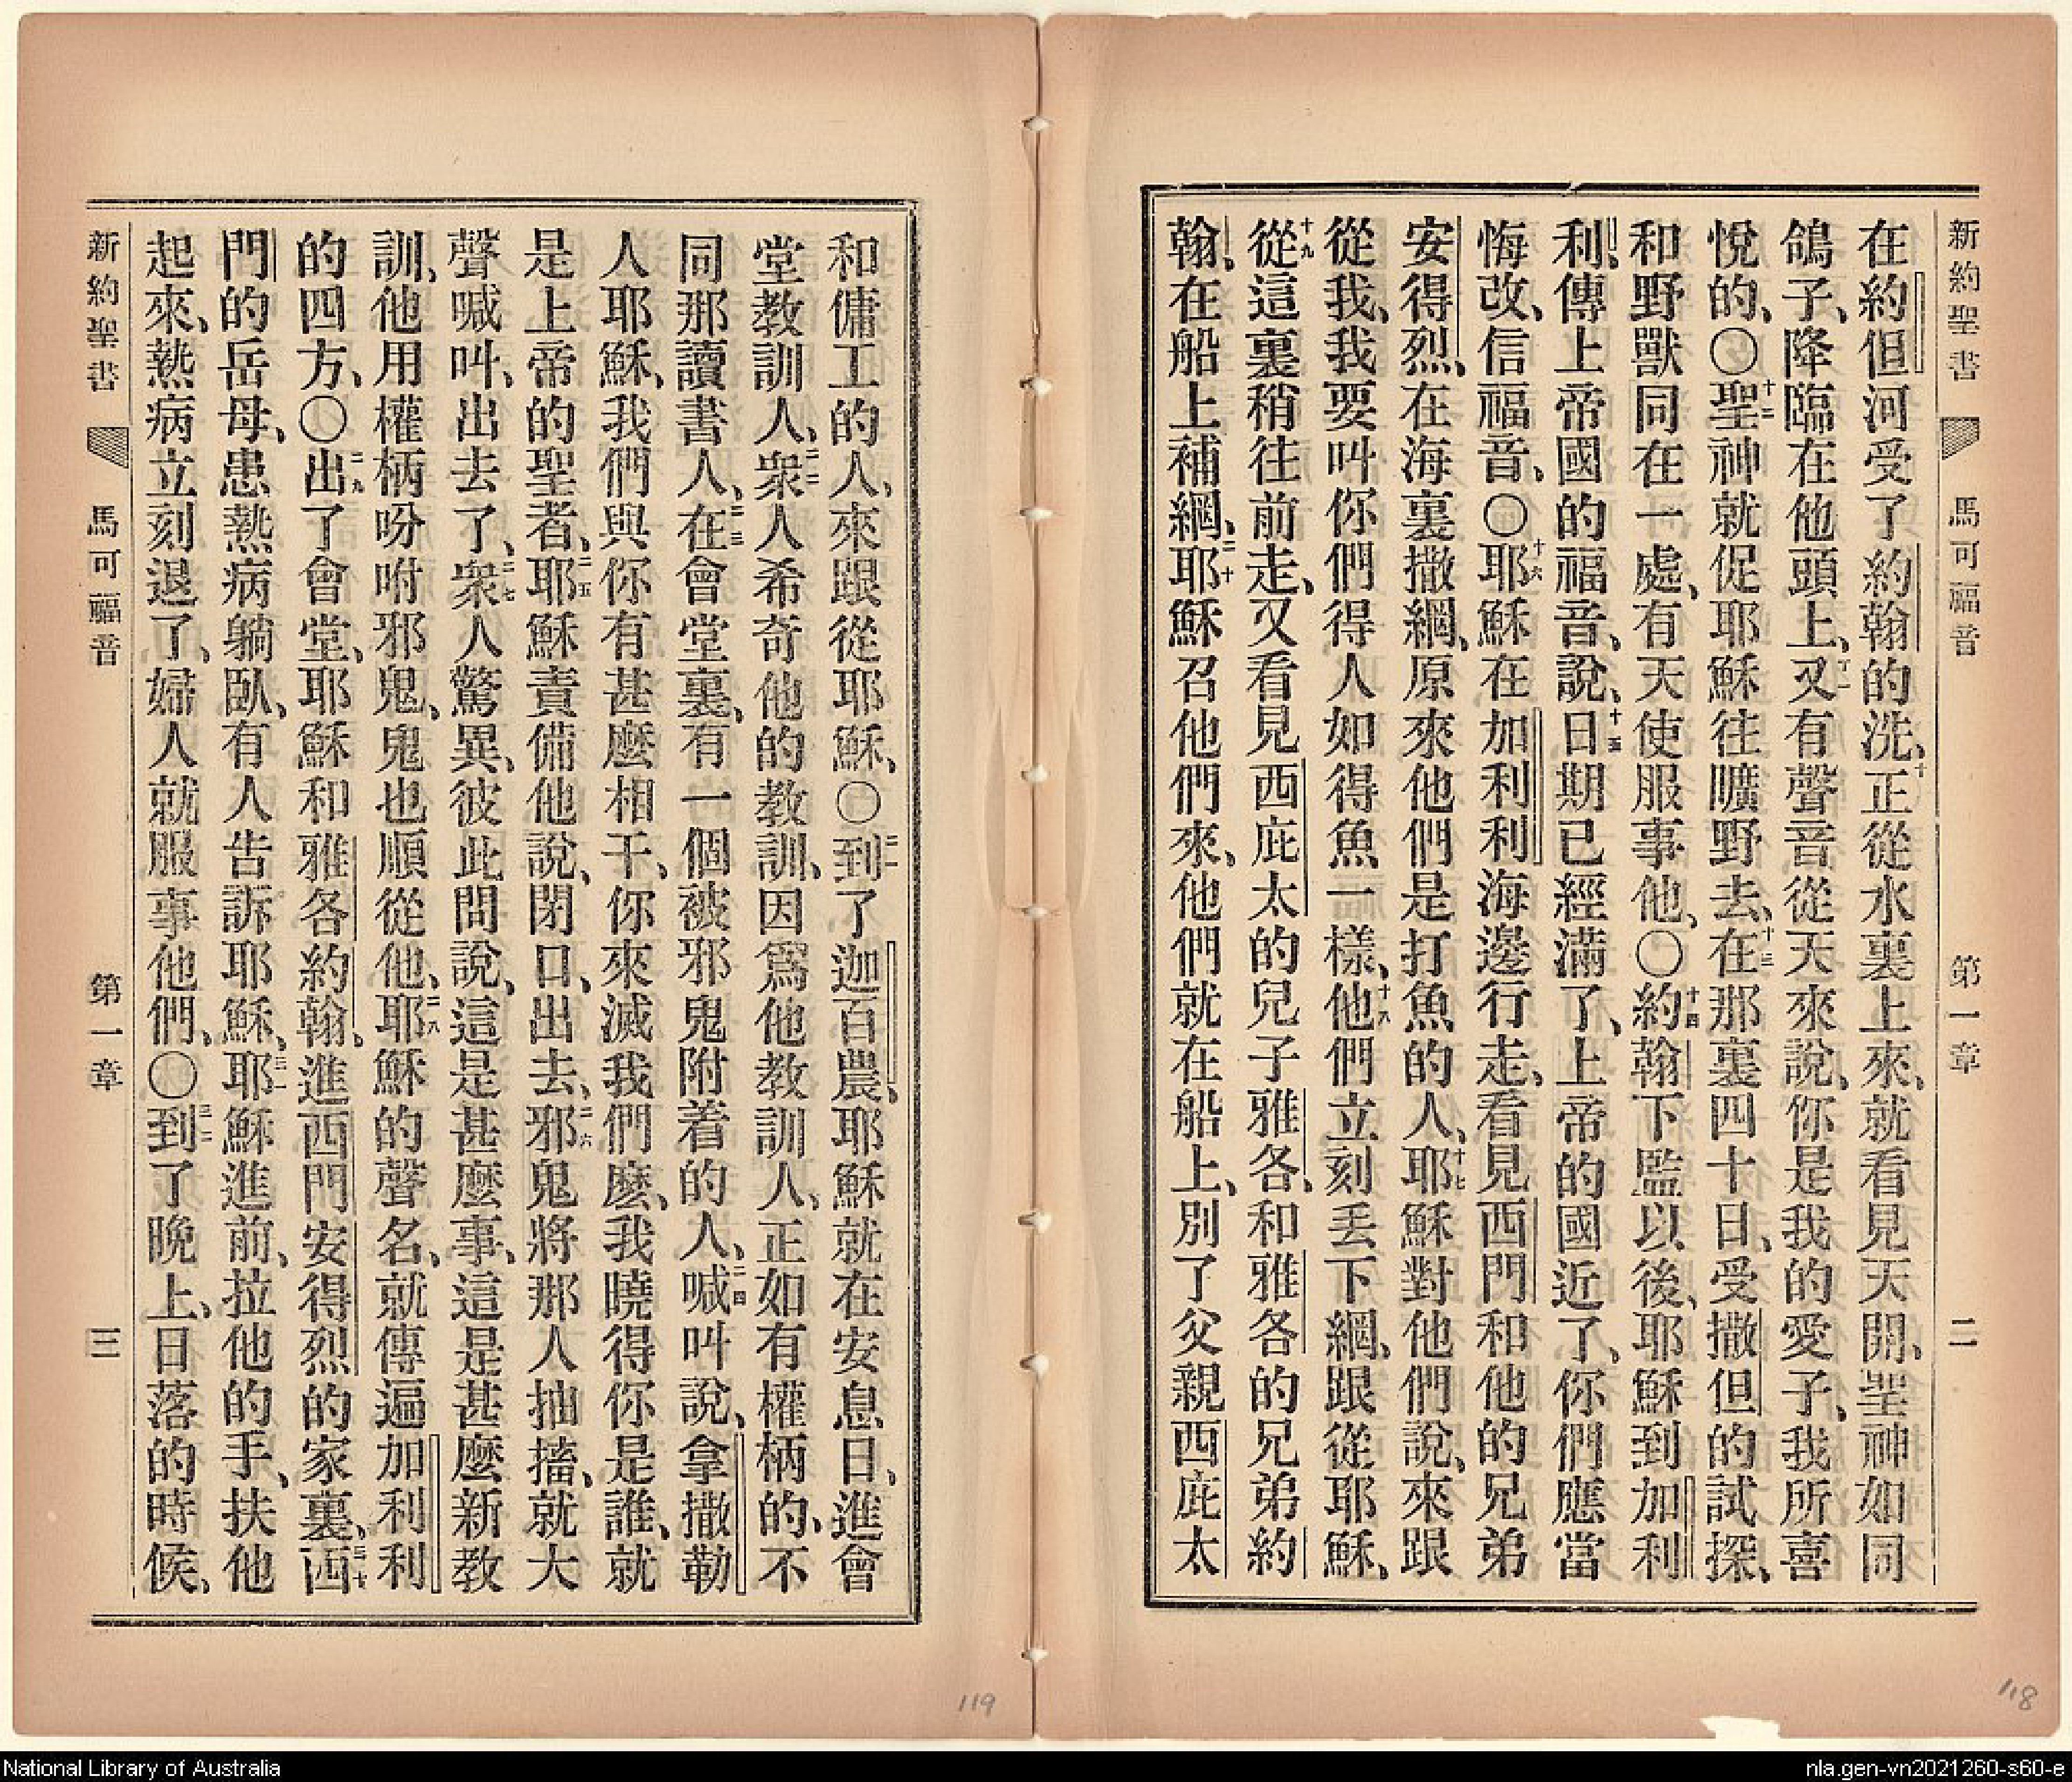 新約聖書 馬可福音 第一章 二
在約但河受了約翰的洗、十正從水裏上來、就看見天開、聖神如同
鴿子、降臨在他頭上、十一又有聲音從天來說、你是我的愛子、我所喜
悅的、〇十二聖神就促耶穌往曠野去、十三在那裏四十日、受撒但的試探、
和野獸同在一處、有天使服事他、〇十四約翰下監以後、耶穌到加利
利、傳上帝國的福音、說、十五日期已經滿了、上帝的國近了、你們應當
悔改、信福音、〇十六耶穌在加利利海邊行走、看見西門和他的兄弟
安得烈、在海裏撒網、原來他們是打魚的人、十七耶穌對他們說、來跟
從我、我要叫你們得人如得魚一樣、十八他們立刻丢下網、跟從耶穌、
十九從這裏稍往前走、又看見西庇太的兒子雅各、和雅各的兄弟約
翰、在船上補網、二十耶穌召他們來、他們就在船上、別了父親西庇太
118
和傭工的人、來跟從耶穌、〇二一到了迦百農、耶穌就在安息日、進會
堂教訓人、二二衆人希奇他的教訓、因爲他教訓人、正如有權柄的、不
同那讀書人、二三在會堂裏、有一個被邪鬼附着的人、二四喊叫說、拿撒勒
人耶穌、我們與你有甚麼相干、你來滅我們麼、我曉得你是誰、就
是上帝的聖者、二五耶穌責備他說、閉口、出去、二六邪鬼將那人抽搐、就大
聲喊叫、出去了、二七衆人驚異、彼此問說、這是甚麼事、這是甚麼新教
訓、他用權柄吩咐邪鬼、鬼也順從他、二八耶穌的聲名、就傳遍加利利
的四方、〇二九出了會堂、耶穌和雅各約翰、進西門安得烈的家裏、三十西
門的岳母、患熱病躺臥、有人告訴耶穌、三一耶穌進前、拉他的手、扶他
起來、熱病立刻退了、婦人就服事他們、〇三二到了晚上、日落的時候、
新約聖書 馬可福音 第一章 三
119
National Library of Australia
nla.gen-vn2021260-s60-e